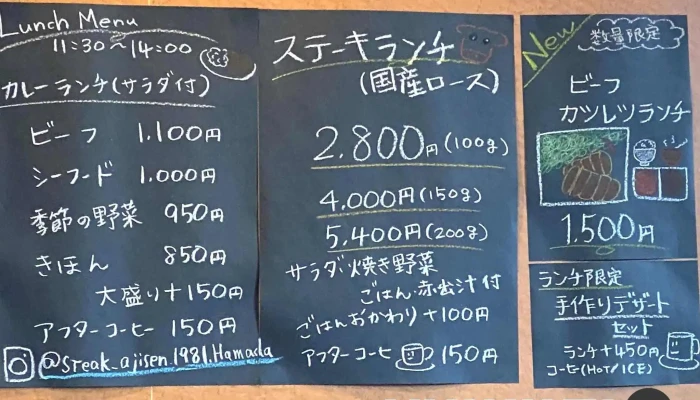 Lunch Menu
11:30~14:00
カレーランチ(サラダ付)
ビーフ 1.100円
シーフード 1.000円
季節の野菜 950円
きほん 850円
大盛り+150円
アフターコーヒー 150円
@sreak_ajisen.1981.Hamada
ステーキランチ
(国産ロース)
2.800円(100g)
4.000円(150g)
5.400円(200g)
サラダ・焼き野菜
ごはん・赤出汁付
ごはんおかわり+100円
アフターコーヒー 150円
New
数量限定
ビーフ
カツレツランチ
1.500円
ランチ限定
手作りデザート
セット
ランチ+450円
コーヒー(HOT/ICE)